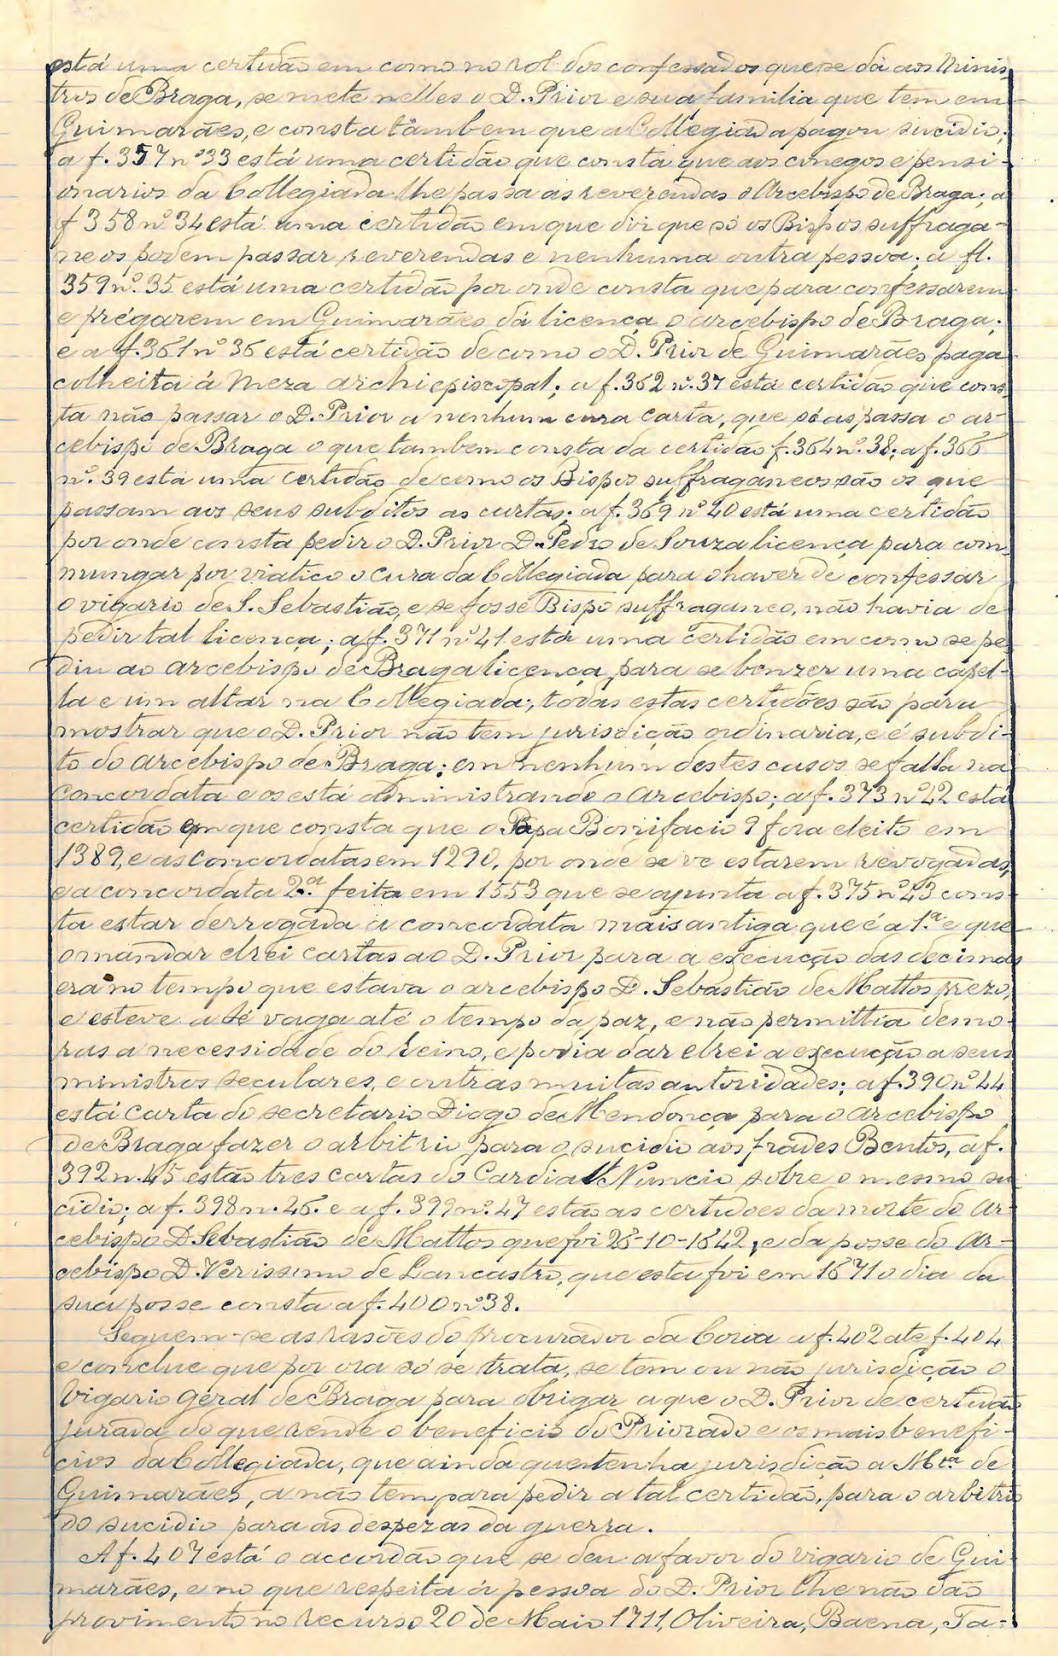 está uma certidão em como no rol dos confessados que se dá aos Minis
tros de Braga, se mete nelles o D. Prior e sua familia que tem em
Guimarães, e consta tambem que a Collegiada pagou sucidio;
a f. 357 nº 33 está uma certidão que consta que aos conegos e pensi-
onarios da Collegiada lhe passa as reverendas o Arcebispo de Braga; a
f 358 nº 34 está uma certidão em que diz que só os Bispos suffraga-
neos podem passar reverendas e nenhuma outra pessoa; a fl.
359 nº. 35 está uma certidão por onde consta que para confessarem
e prégarem em Guimarães dá licença o arcebispo de Braga;
e a f. 361 nº 36 está certidão de como o D. Prior de Guimarães paga
colheita á Meza archiepiscopal; a f. 362 nº. 37 esta certidão que cons
ta não passar o D. Prior a nenhum cura carta, que só as passa o ar-
cebispo de Braga o que tambem consta da certidão f. 364 nº. 38; a f. 366
nº. 39 está uma certidão de como os Bispos suffraganeos são os que
passam aos seus subditos as cartas; a f. 369 nº 40 está uma certidão
por onde consta pedir o D. Prior D. Pedro de Souza licença para com-
mungar por viatico o cura da Collegiada para o haver de confessar
o vigario de S. Sebastião, e se fosse Bispo suffraganeo, não havia de
pedir tal licença; a f. 371 nº 41 está uma certidão em como se pe
diu ao arcebispo de Braga licença para se benzer uma capel-
la e um altar na Collegiada; todas estas certidões são para
mostrar que o D. Prior não tem jurisdição ordinaria, e é subdi-
to do arcebispo de Braga; em nenhum destes casos se falla na
Concordata e os está administrando o Arcebispo; a f. 373 nº 42 está
certidão em que consta que o Papa Bonifacio 9 fora eleito em
1389, e as concordatas em 1290, por onde se ve estarem revogadas,
e a concordata 2.ª feita em 1553 que se ajunta a f. 375 nº 43 cons-
ta estar derrogada a concordata mais antiga que é a 1.ª e que
o mandar elrei cartas ao D. Prior para a execução das decimas
era no tempo que estava o arcebispo D. Sebastião de Mattos prezo,
e esteve a Sé vaga até o tempo da paz, e não permittia demo-
ras a necessidade do reino, e podia dar elrei a execução a seus
ministros seculares, e outras muitas autoridades; a f. 390 nº 44
está carta do secretario Diogo de Mendonça para o arcebispo
de Braga fazer o arbitrio para o sucidio aos frades Bentos, a f.
392 n. 45 estão tres cartas do Cardial Nuncio sobre o mesmo su
cidio; a f. 398 n. 46. e a f. 399 nº. 47 estão as certidões da morte do Ar-
cebispo D. Sebastião de Mattos que foi 28-10-1642, e da posse do Ar-
cebispo D. Verissimo de Lancastro, que esta foi em 1671 o dia da
sua posse consta a f. 400 nº 38.
Seguem-se as rasões do procurador da Coroa a f. 402 até f. 404
e conclue que por ora só se trata, se tem ou não jurisdição o
Vigario Geral de Braga para obrigar a que o D. Prior de certidão
jurada do que rende o beneficio do Priorado e os mais benefi-
cios da Collegiada, que ainda que tenha jurisdição a Mtra de
Guimarães, a não tem para pedir a tal certidão, para o arbitrio
do sucidio para as despezas da guerra.
A f. 407 está o accordão que se deu a favor do vigario de Gui
marães, e no que respeita á pessoa do D. Prior lhe não dão
provimento no recurso 20 de Maio 1711, Oliveira, Baena, Ta-